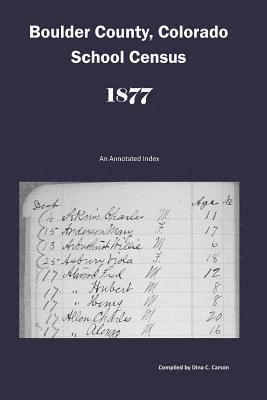 Boulder County, Colorado
School Census
1877
An Annotated Index
Dist Age
4 Akins, Charles M. 11
15 Anderson Mary F. 17
13 Arbuthnot Willie M 6
25 Asbury Viola F 18
17 Atwood Fred M 12
17 " Hubert M 8
17 " Henry M 8
17 Allen Charles M 20
17 " Alonzo M 16
Compiled by Dina C. Carson